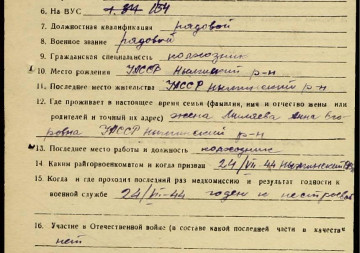 6. На ВУС 1.84 134
7. Должностная квалификация рядовой
8. Военное звание рядовой
9. Гражданская специальность колхозник
10. Место рождения УАССР Нылгинский р-н
11. Последнее место жительства УАССР Нылгинский р-н
12. Где проживает в настоящее время семья (фамилия, имя и отчество жены или
родителей и точный их адрес) жена Анна Его-
ровна УАССР Нылгинский р-н
13. Последнее место работы и должность колхозник
14. Каким райгорвоенкоматом и когда призван 24/VII-44 Нылгинский
15. Когда и где проходил последний раз медкомиссию и результат годности к
военной службе 24/VII-44 годен к нестроевой
16. Участие в Отечественной войне (в составе какой последней части и в качестве
нет